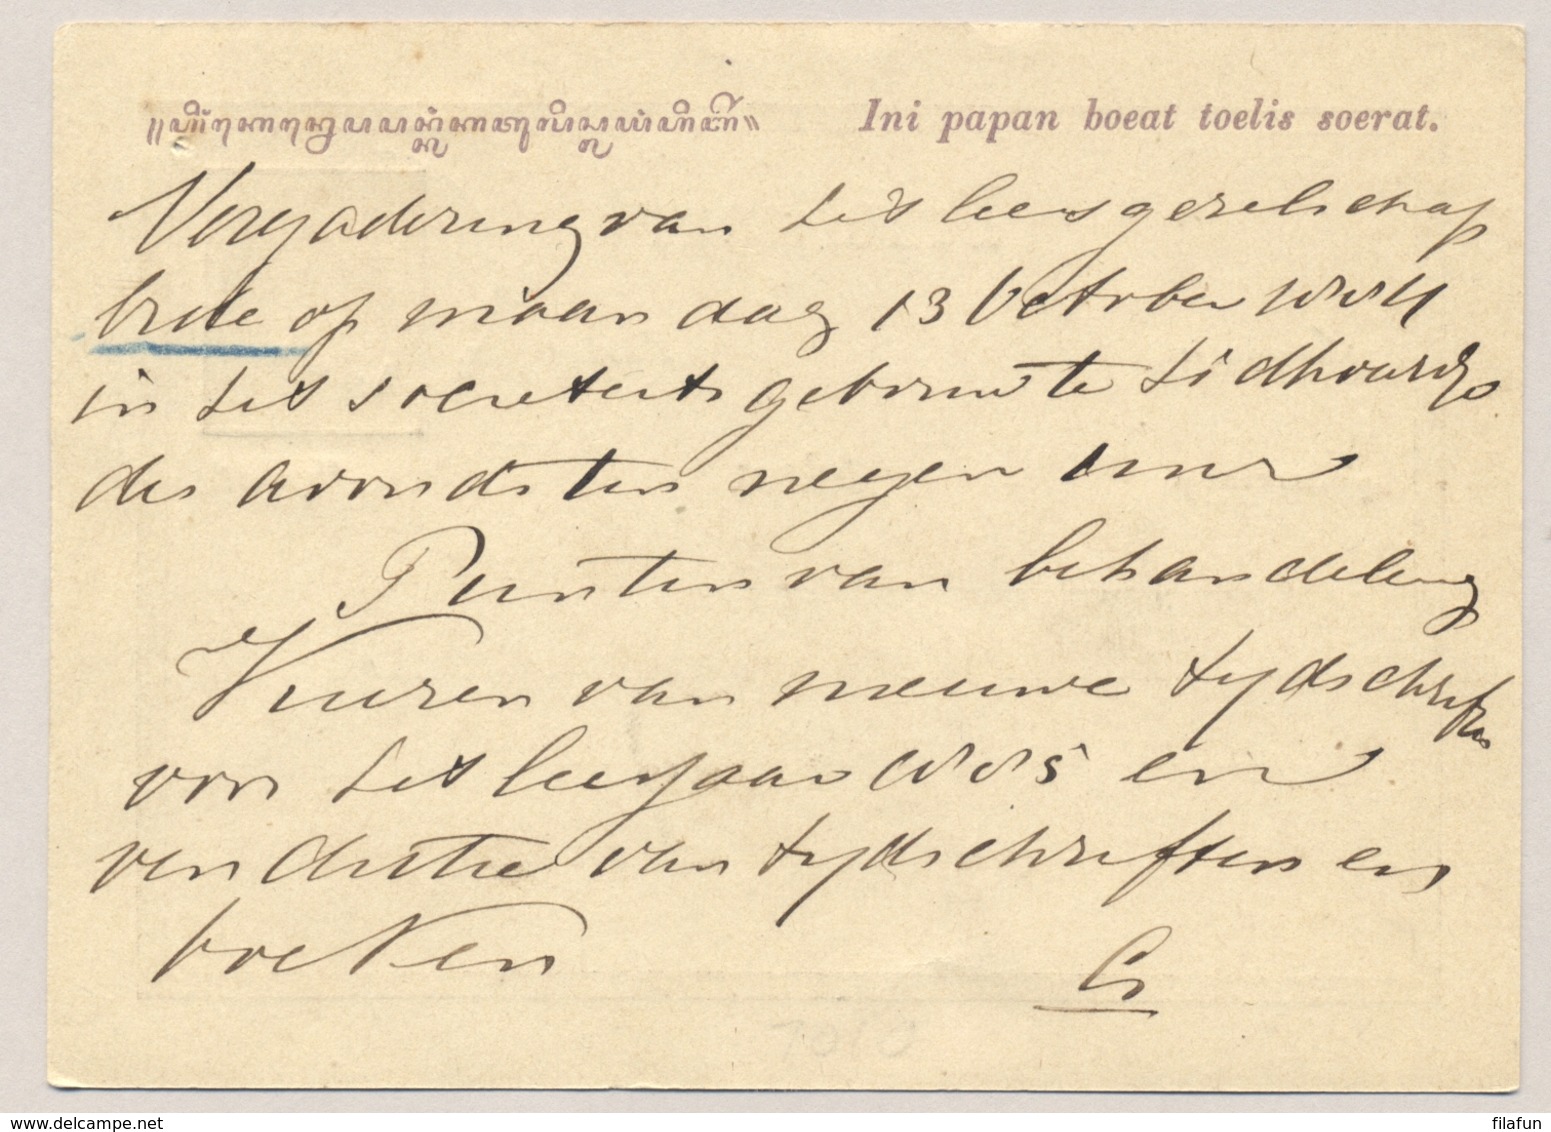 Ini papan boeat toelis soerat.
Vergadering van het leesgezelschap
op maandag 13 October 1884
in het societeits gebouw te Sidhoardjo
des avonds ten negen uur
Punten van behandeling
Keuzen van nieuwe tydschriften
voor het leesjaar 1885 en
vendutie van tydschriften en
boeken
www.delcampe.net
filafun